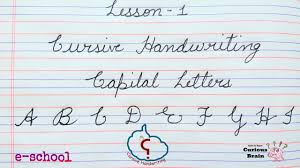 Lesson-1
Cursive Handwriting
Capital Letters
A B C D E F G H I
Cursive Handwriting
e-school
Curious Brain